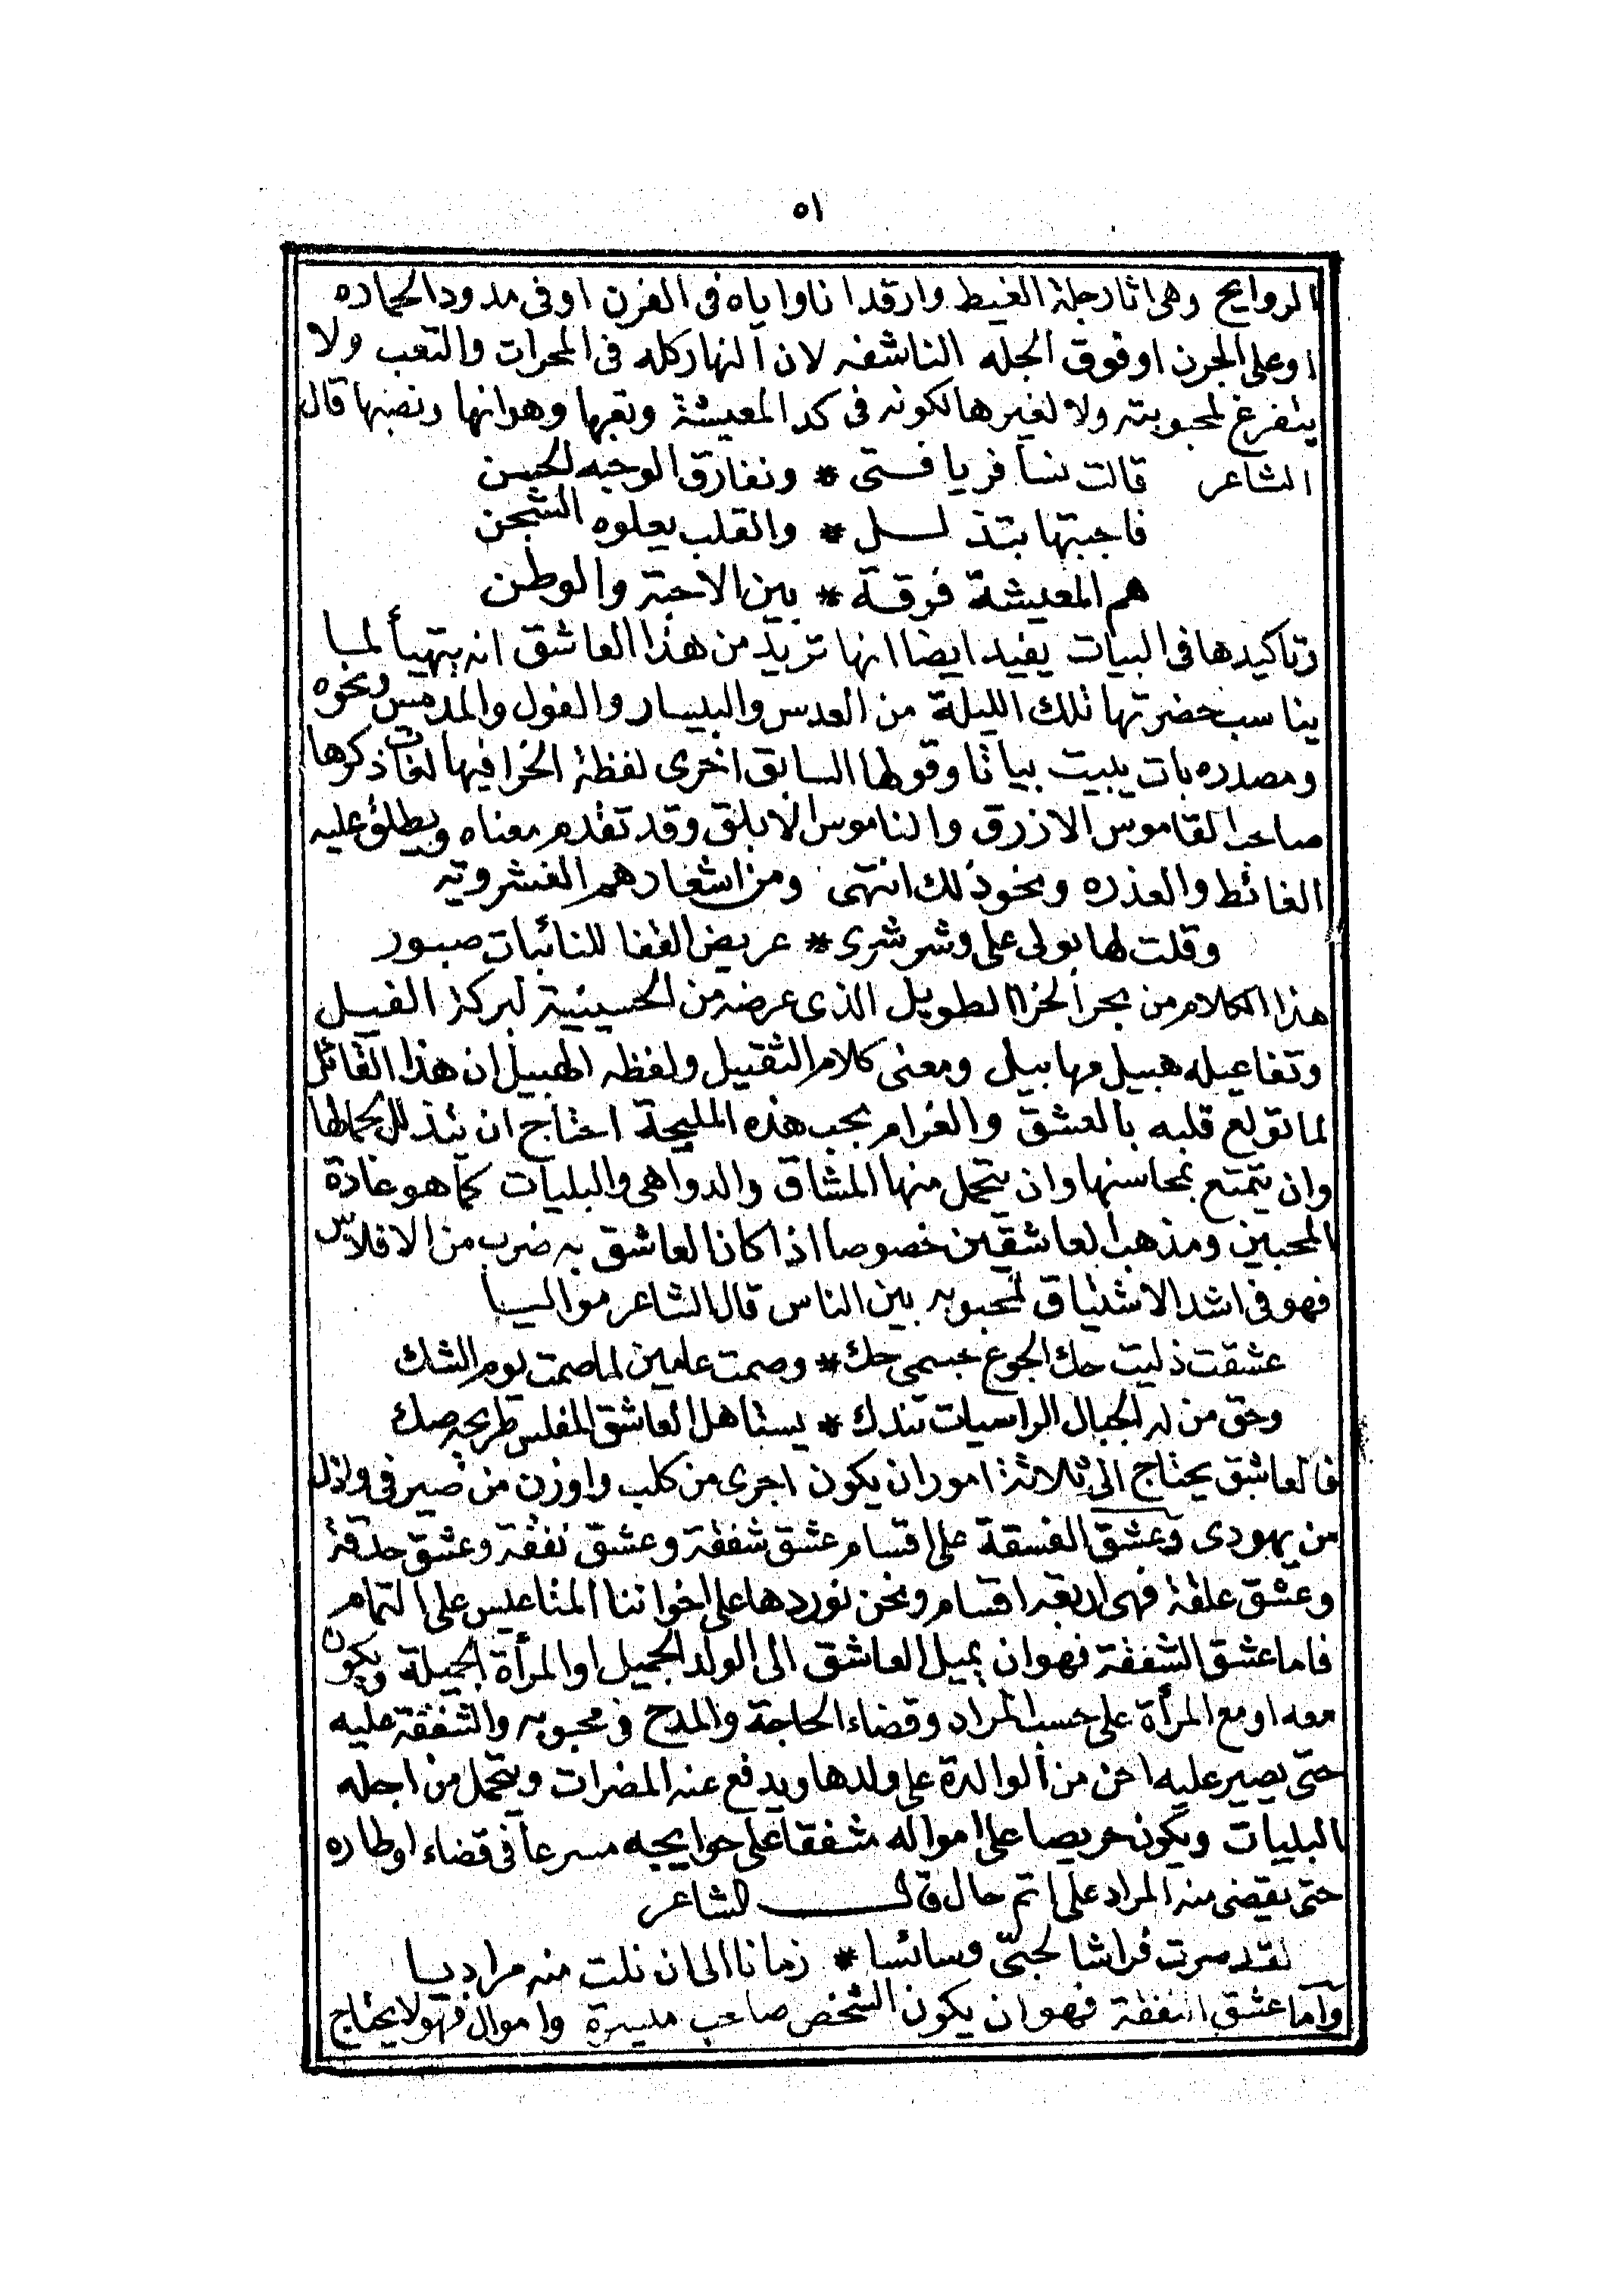 ٥١
الروايح وهى اثارجلة الغيط وارقد انا واياه فى الفرن او فى مدود الحماره
او على الجرن او فوق الجله الناشفه لان النهار كله فى المحرات والتعب ولا
يتفرغ لمحبوبته ولا لغيرها لكونه فى كد المعيشة وتعبها وهوانها ونصبها قال
الشاعر قالت نسافر يا فتى * ونفارق الوجه الحسن
فاجبتها بتذلل * والقلب يعلوه الشجن
هم المعيشة فرقة * بين الاحبة والوطن
وتاكيدها فى البيات يفيد ايضا انها تريد من هذا العاشق انه يتهيأ لما
يناسب حضرتها تلك الليلة من العدس والبيسار والفول والمدمس ونحوه
ومصدره بات يبيت بياتا وقولها السابق اخرى لفظة الخرا فيها لغات ذكرها
صاحب القاموس الازرق والناموس الابلق وقد تقدم معناه ويطلق عليه
الغائط والعذره ونحو ذلك انتهى ومن اشعارهم الفشرويه
وقلت لها بولى على وشرشرى * عريض القفا للنائبات صبور
هذا الكلام من بحر الخرا الطويل الذى عرضه من الحسينية لبركة الفيل
وتفاعيله هبيل مهابيل ومعنى كلام الثقيل ولفظه الهبيل ان هذا القائل
لما تولع قلبه بالعشق والغرام بحب هذه المليحة احتاج ان يتذلل لجمالها
وان يتمتع بمحاسنها وان يتحمل منها المشاق والدواهى والبليات كما هو عادة
المحبين ومذهب العاشقين خصوصا اذا كان العاشق به ضرب من الافلاس
فهو فى اشد الاشتياق لمحبوبه بين الناس قال الشاعر مواليا
عشقت ذليت حك الجوع بجسمى حك * وصمت عامين لما صمت يوم الشك
وحق من له الجبال الراسيات تندك * يستاهل العاشق المفلس طريحه صك
فالعاشق يحتاج الى ثلاثة امور ان يكون اجرى من كلب واوزن من صيرفى واذل
من يهودى وعشق الفسقة على اقسام عشق شفقة وعشق نفقة وعشق حدقة
وعشق علقة فهى اربعه اقسام ونحن نوردها على اخواننا المتاعيس على التمام
فاما عشق الشفقة فهو ان يميل العاشق الى الولد الجميل او المرأة الجميلة ويكون
معه او مع المرأة على حسب المراد وقضاء الحاجة والمدح فى محبوبه والشفقة عليه
حتى يصير عليه احن من الوالدة على ولدها ويدفع عنه المضرات ويتحمل من اجله
البليات ويكون حريصا على امواله مشفقا على حوايجه مسرعا فى قضاء اوطاره
حتى يقضى منه المراد على اتم حال قال الشاعر
لقد صرت فراشا لحبى وسائسا * زمانا الى ان نلت منه مراديا
واما عشق النفقة فهو ان يكون الشخص صاحب ميسرة واموال فهو لا يحتاج